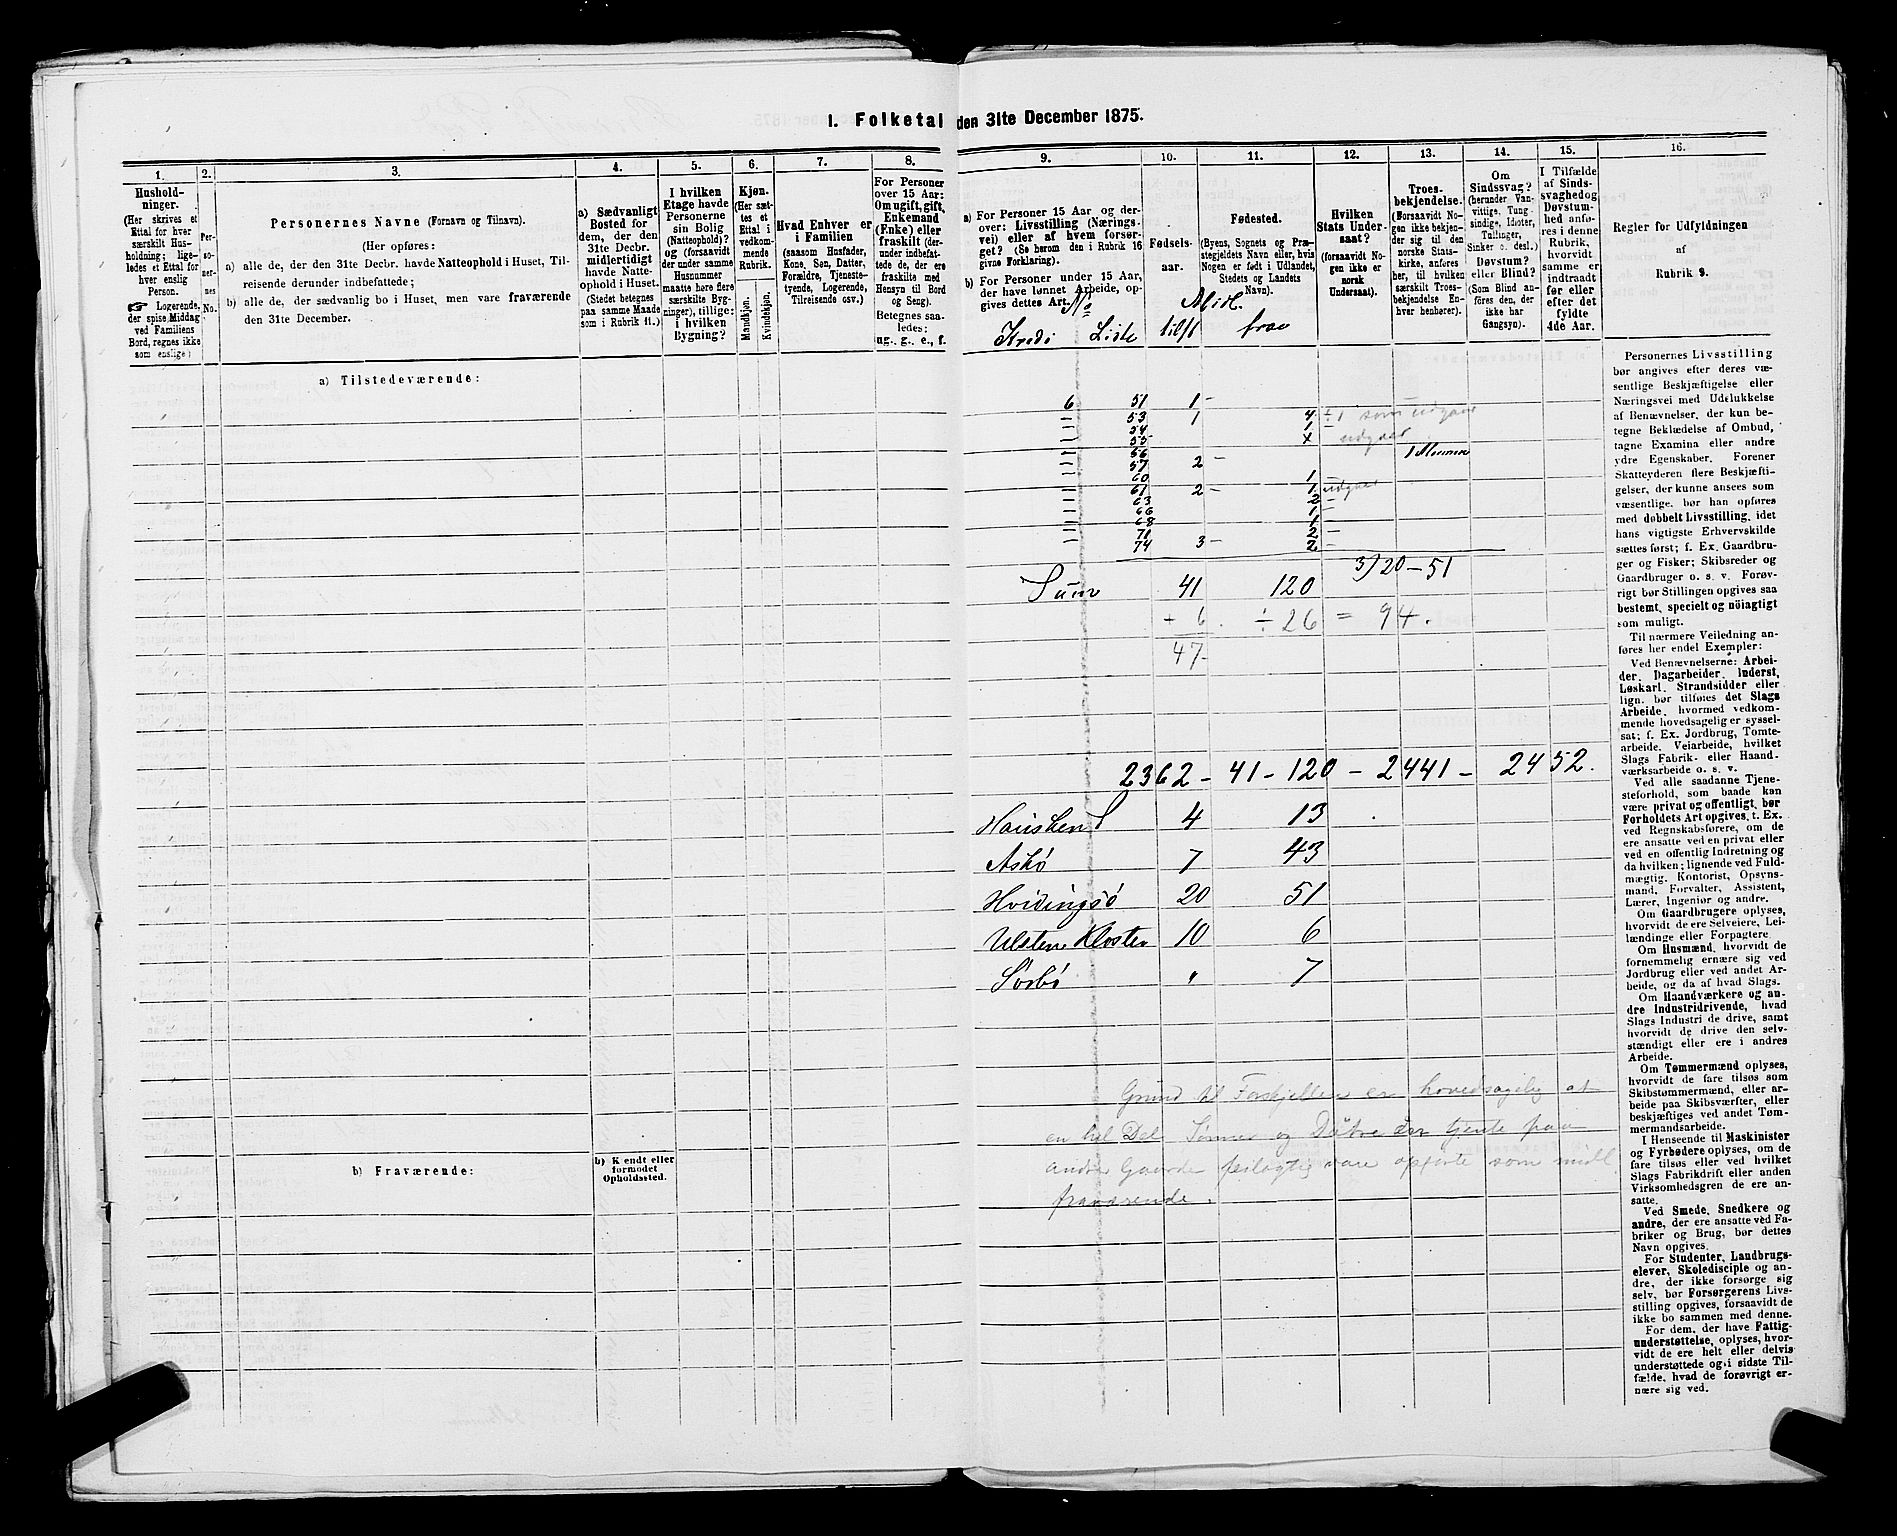 1. Folketal den 31te December 1875.
1.
2.
3.
4.
5.
6.
7.
8.
9.
10.
11.
12.
13.
14.
15.
16.
Hushold-
ninger.
(Her skrives et
Ettal for hver
særskilt Hus-
holdning; lige-
ledes et Ettal for
hver enslig
Person.
Logerende,
der spise Middag
ved Familiens
Bord, regnes ikke
som enslige)
Per-
so-
ner-
nes
No.
Personernes Navne (Fornavn og Tilnavn).
(Her opføres:
a) alle de, der den 31te Decbr. havde Natteophold i Huset, Til-
reisende derunder indbefattede;
b) alle de, der sædvanlig bo i Huset, men vare fraværende
den 31te December.
a) Sædvanligt
Bosted for
dem, der den
31te Decbr.
midlertidigt
havde Natte-
ophold i Huset.
(Stedet betegnes
paa samme Maade
som i Rubrik 11.)
I hvilken
Etage havde
Personerne
sin Bolig
(Natteophold)?
og (forsaavidt
der under samme
Husnummer
maatte høre flere
særskilte Byg-
ninger), tillige:
i hvilken
Bygning?
Kjøn.
(Her sæt-
tes et
Ettal i
vedkom-
mende
Rubrik.
Mandkjøn.
Kvindekjøn.
Hvad Enhver er
i Familien
(saasom Husfader,
Kone, Søn, Datter,
Forældre, Tjeneste-
tyende, Logerende,
Tilreisende osv.)
For Personer
over 15 Aar:
Om ugift, gift,
Enkemand
(Enke) eller
fraskilt (der-
under indbefat-
tede de, der ere
fraskilte med
Hensyn til Bord
og Seng).
Betegnes saa-
ledes:
ug., g., e., f.
a) For Personer 15 Aar og der-
over: Livsstilling (Nærings-
vei) eller af hvem forsør-
get? (Se herom den i Rubrik 16
givne Forklaring).
b) For Personer under 15 Aar,
der have lønnet Arbeide, op-
gives dettes Art.
Fødsels-
aar.
Fødested.
(Byens, Sognets og Præ-
stegjeldets Navn eller, hvis
Nogen er født i Udlandet,
Stedets og Landets
Navn).
Hvilken
Stats Under-
saat?
(forsaavidt No-
gen ikke er
norsk
Undersaat).
Troes-
bekjendelse.
(Forsaavidt No-
gen ikke bekjen-
der sig til den
norske Stats-
kirke, anføres
her, til hvilken
særskilt Troes-
bekjendelse En-
hver henhører).
Om
Sindssvag?
(herunder Van-
vittige, Tung-
sindige, Idioter,
Tullinger,
Sinker o. desl.)
Døvstum?
eller Blind?
(Som Blind an-
føres den, der
ikke har
Gangsyn).
I Tilfælde
af Sinds-
svaghed og
Døvstum-
hed anfø-
res i denne
Rubrik,
hvorvidt
samme er
indtraadt
før eller
efter det
fyldte
4de Aar.
Regler for Udfyldningen
af
Rubrik 9.
No
Midl.
Kredś Liste tilst frav
a) Tilstedeværende:
6 51 1 –
53 1 4 ÷1 som udgaar
54 1 –
55 x udgaar
56 1 Manum
57 2 –
60 1 –
61 2 – 1 udgaar
63 2 –
66 1 –
68 1
71 2 –
74 3 – 2 –
3) 20 – 51
Sum 41 120
+ 6. ÷ 26 = 94.
47.
2362 – 41 – 120 – 2441 – 2452.
Hausken 4 13
Askø 7 43
Hvidingsø 20 51
Utsten Kloster 10 6
Sørbø " 7
Grund til Forskjellen er hovedsagelig at
en hel Del Sønner og Døtre der tjente paa
andre Gaarde feilagtig vare opførte som midl.
fraværende.
b) Fraværende:
b) Kendt eller
formodet
Opholdssted.
Personernes Livsstilling
bør angives efter deres væ-
sentlige Beskjæftigelse eller
Næringsvei med Udelukkelse
af Benævnelser, der kun be-
tegne Beklædelse af Ombud,
tagne Examina eller andre
ydre Egenskaber. Forener
Skatteyderen flere Beskjæfti-
gelser, der kunne ansees som
væsentlige, bør han opføres
med dobbelt Livsstilling, idet
hans vigtigste Erhvervskilde
sættes først; f. Ex. Gaardbru-
ger og Fisker; Skibsreder og
Gaardbruger o. s. v. Forøv-
rigt bør Stillingen opgives saa
bestemt, specielt og nöiagtigt
som muligt.
Til nærmere Veiledning an-
føres her endel Exempler:
Ved Benævnelserne: Arbei-
der, Dagarbeider, Inderst,
Løskarl, Strandsidder eller
lign. bør tilføres det Slags
Arbeide, hvormed vedkom-
mende hovedsagelig er syssel-
sat; f. Ex. Jordbrug, Tomte-
arbeide, Veiarbeide, hvilket
Slags Fabrik- eller Haand-
værksarbeide o. s. v.
Ved alle saadanne Tjene-
steforhold, som baade kan
være privat og offentligt, bør
Forholdets Art opgives, t. Ex.
ved Regnskabsførere, om de
ere ansatte ved en privat eller
ved en offentlig Indretning og
da hvilken; lignende ved Fuld-
mægtig, Kontorist, Opsyns-
mand, Forvalter, Assistent,
Lærer, Ingeniør og andre.
Om Gaardbrugere oplyses,
hvorvidt de ere Selveiere, Lei-
lændinge eller Forpagtere.
Om Husmænd, hvorvidt de
fornemmelig ernære sig ved
Jordbrug eller ved andet Ar-
beide, og da af hvad Slags.
Om Haandværkere og an-
dre Industridrivende, hvad
Slags Industri de drive, samt
hvorvidt de drive den selv-
stændigt eller ere i andres
Arbeide.
Om Tømmermænd oplyses,
hvorvidt de fare tilsøs som
Skibstømmermænd, eller ar-
beide paa Skibsværfter, eller
beskjæftiges ved andet Tøm-
mermandsarbeide.
I Henseende til Maskinister
og Fyrbødere oplyses, om de
fare tilsøs eller ved hvilket
Slags Fabrikdrift eller anden
Virksomhedsgren de ere an-
satte.
Ved Smede, Snedkere og
andre, der ere ansatte ved Fa-
briker og Brug, bør dettes
Navn opgives.
For Studenter, Landbrugs-
elever, Skoledisciple og an-
dre, der ikke forsørge sig
selv, bør Forsørgerens Livs-
stilling opgives, forsaavidt de
ikke bo sammen med denne.
For dem, der have Fattig-
understøttelse, oplyses, hvor-
vidt de ere helt eller delvis
understøttede og i sidste Til-
fælde, hvad de forøvrigt er-
nære sig ved.